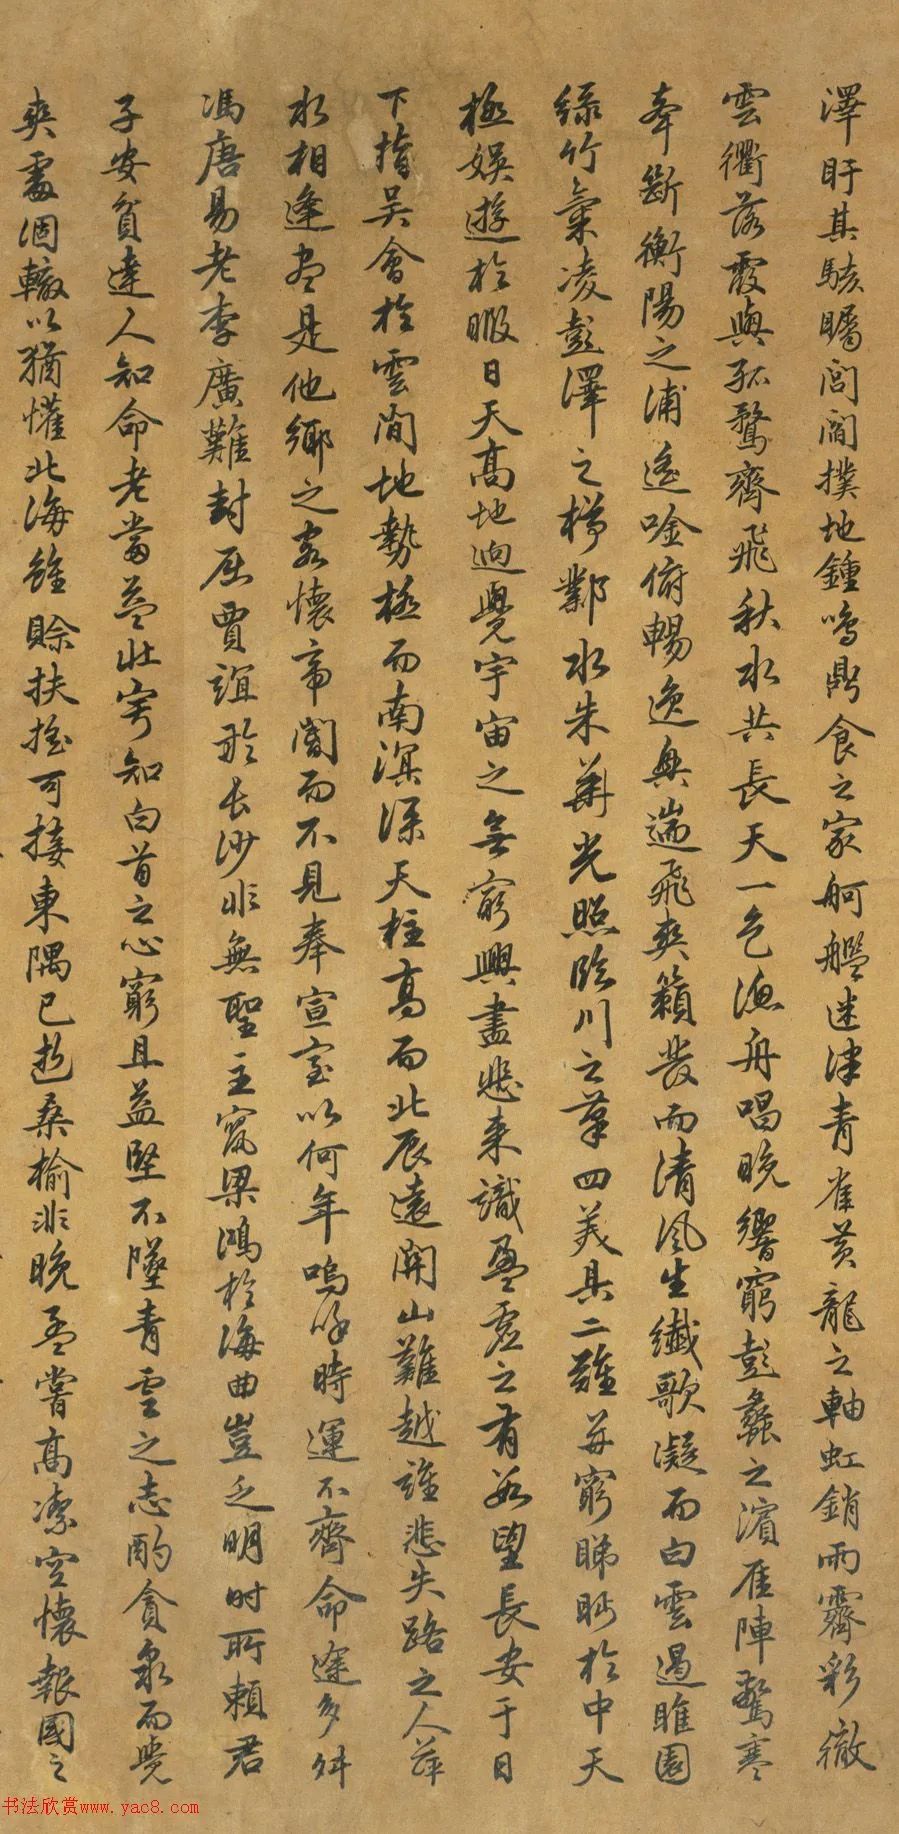 澤盱其駭矚閭閻撲地鍾鳴鼎食之家舸艦迷津青雀黃龍之軸虹銷雨霽彩徹
雲衢落霞與孤鶩齊飛秋水共長天一色漁舟唱晚響窮彭蠡之濱雁陣驚寒
牽斷衡陽之浦遙唫俯暢逸興遄飛爽籟發而清風生纖歌凝而白雲遏睢園
綠竹氣凌彭澤之樽鄴水朱華光照臨川之筆四美具二難并窮睇眄於中天
極娛遊於暇日天高地迥覺宇宙之無窮興盡悲來識盈虛之有數望長安于日
下指吳會於雲間地勢極而南溟深天柱高而北辰遠關山難越誰悲失路之人萍
水相逢盡是他鄉之客懷帝閽而不見奉宣室以何年嗚呼時運不齊命途多舛
馮唐易老李廣難封屈賈誼於長沙非無聖主竄梁鴻於海曲豈乏明時所賴君
子安貧達人知命老當益壯寧知白首之心窮且益堅不墜青雲之志酌貪泉而覺
爽處涸轍以猶懽北海雖賒扶搖可接東隅已逝桑榆非晚孟嘗高潔空懷報國之
书法欣赏www.yac8.com